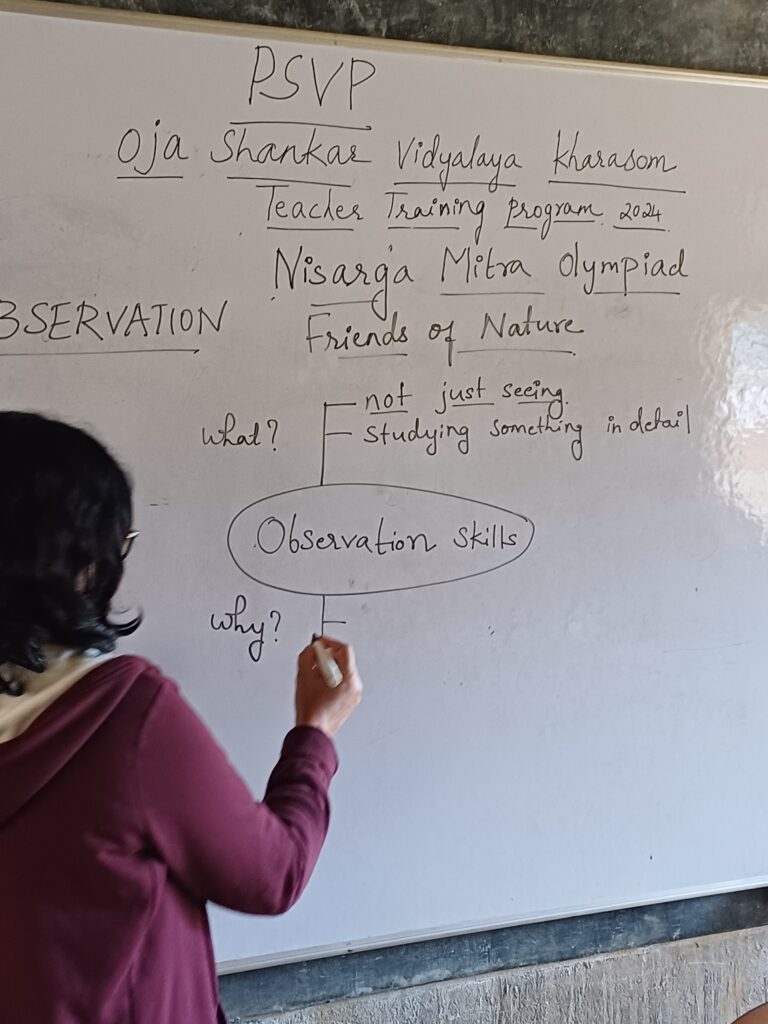 PSVP
Oja Shankar Vidyalaya Kharasom
Teacher Training Program 2024
Nisarga Mitra Olympiad
BSERVATION
Friends of Nature
not just seeing
what?
studying something in detail
Observation skills
why?